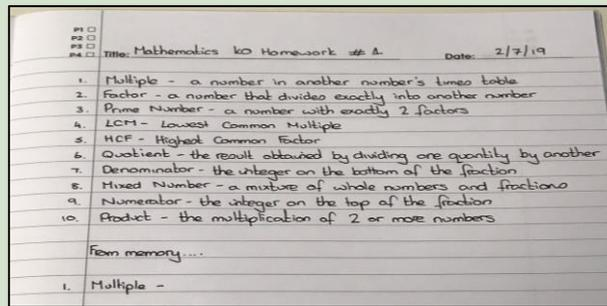 P1 □
P2 □
P3 □
P4 □ Title: Mathematics KO Homework # 1. Date: 2/7/19
1. Multiple - a number in another number's times table
2. Factor - a number that divides exactly into another number
3. Prime Number - a number with exactly 2 factors
4. LCM - Lowest Common Multiple
5. HCF - Highest Common Factor
6. Quotient - the result obtained by dividing one quantity by another
7. Denominator - the integer on the bottom of the fraction
8. Mixed Number - a mixture of whole numbers and fractions
9. Numerator - the integer on the top of the fraction
10. Product - the multiplication of 2 or more numbers
From memory....
1. Multiple -